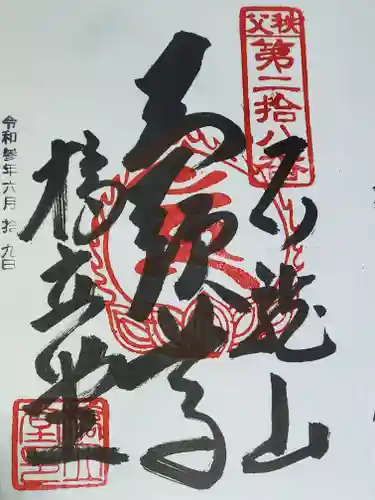 秩父
第二拾八番
石龍山
馬頭尊
橋立堂
令和参年六月拾九日